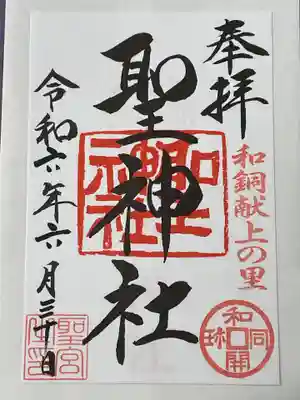 奉拝
和銅献上の里
聖神社
令和六年六月三十日
和同開珎
聖宮